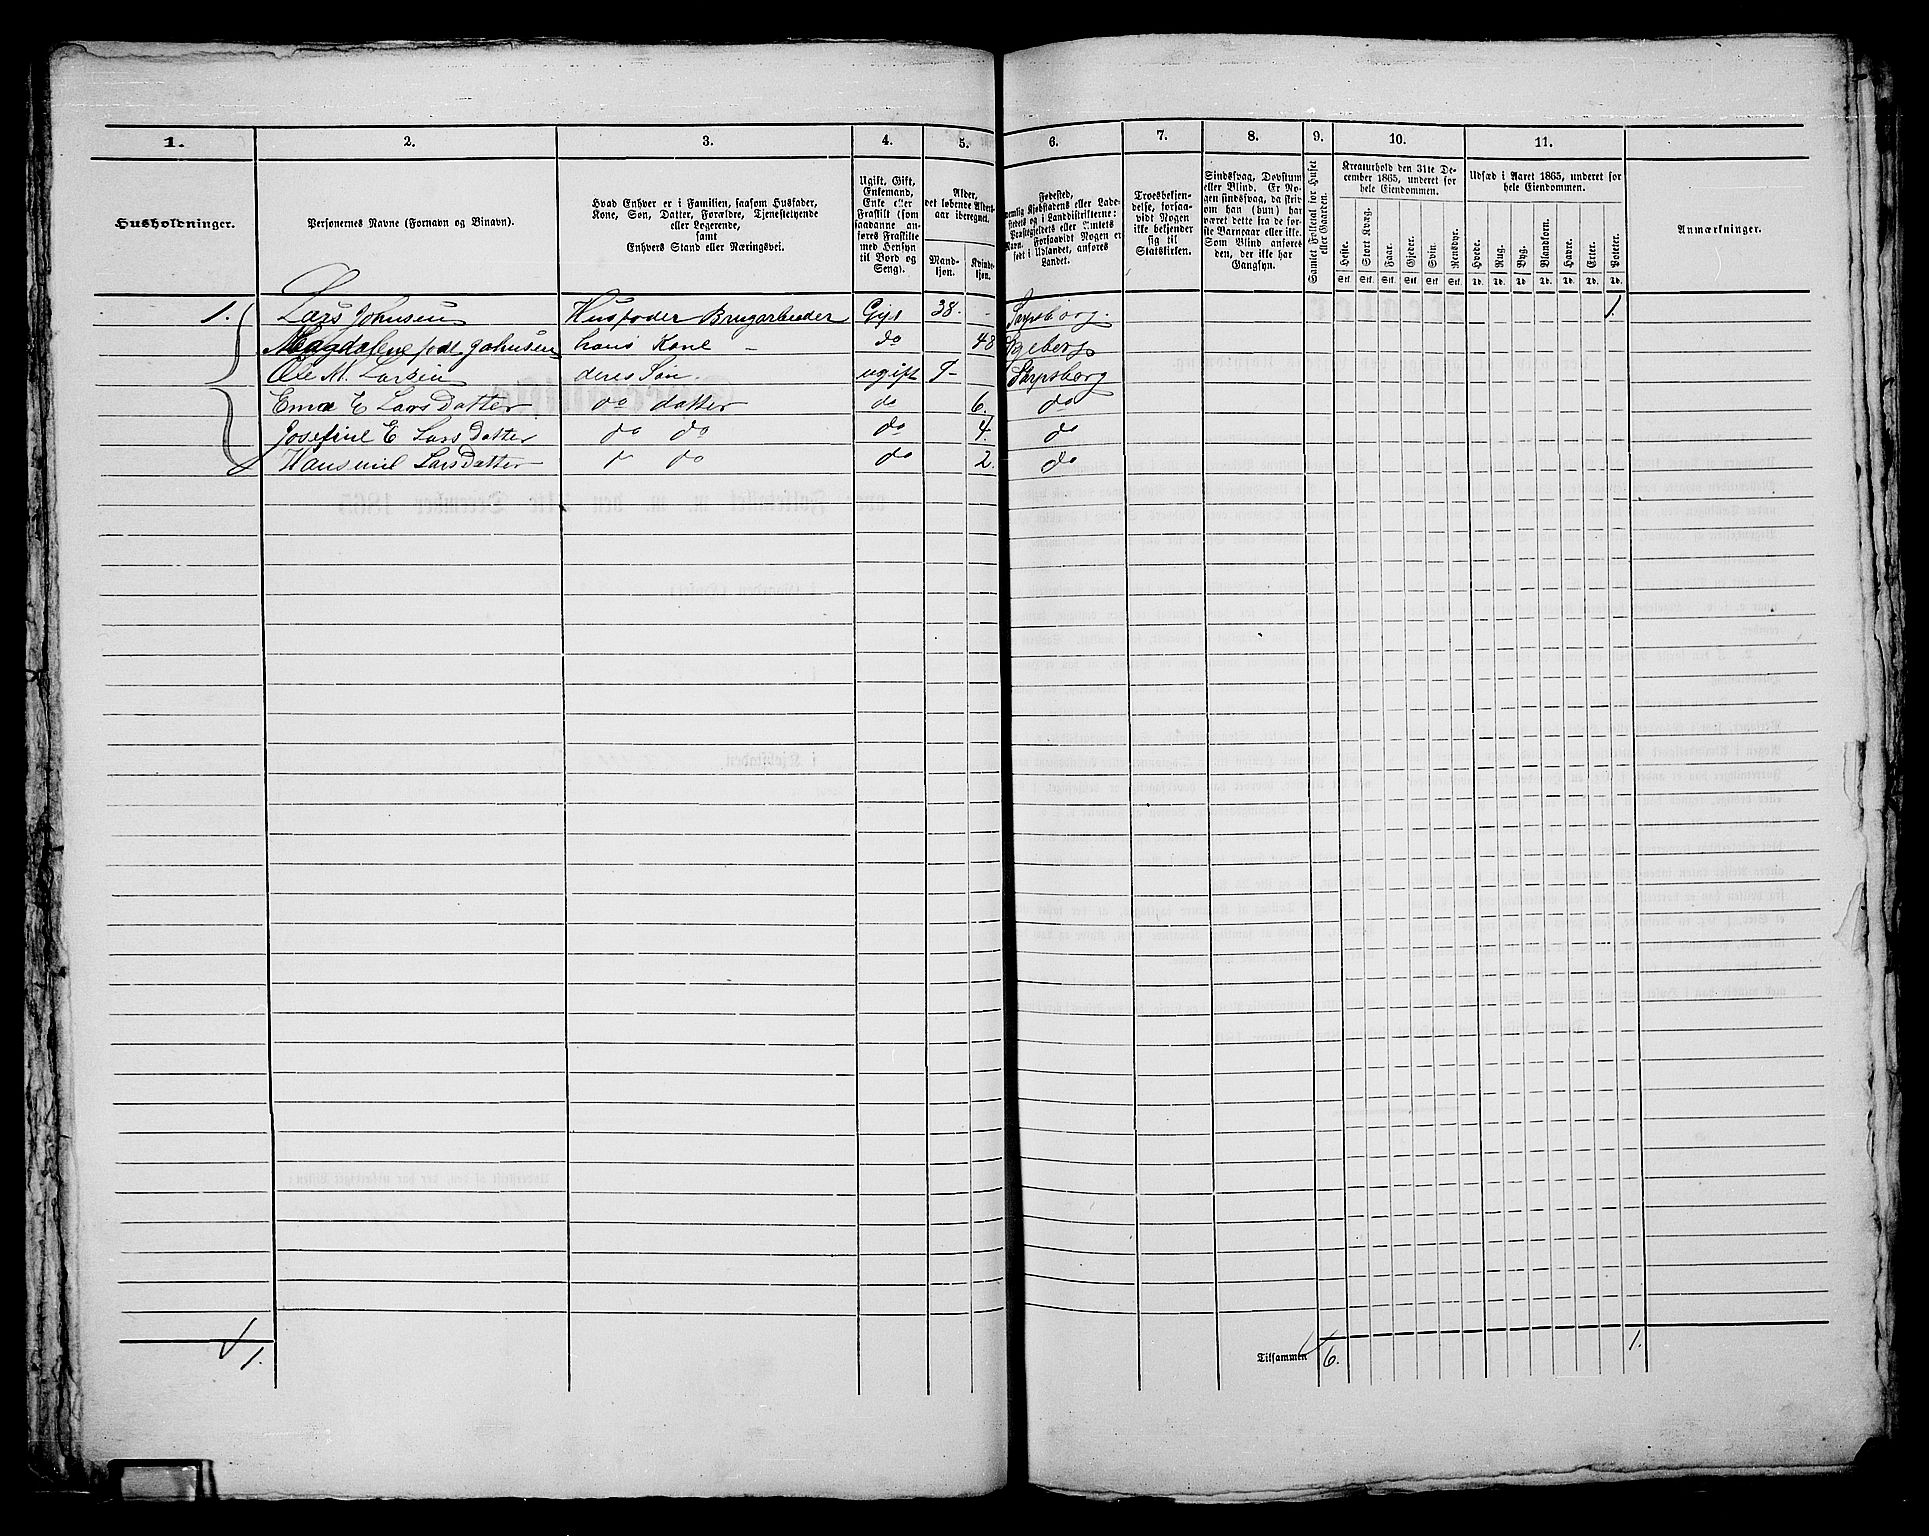 1. 2. 3. 4. 5. 6. 7. 8. 9. 10. 11.
Husholdninger.
Personernes Navne (Fornavn og Binavn).
Hvad Enhver er i Familien, saasom Husfader,
Kone, Søn, Datter, Forældre, Tjenestetyende
eller Logerende,
samt
Enhvers Stand eller Næringsvei.
Ugift, Gift,
Enkemand,
Enke eller
Fraskilt (som
saadanne an-
føres Fraskilte
med Hensyn
til Bord og
Seng).
Alder,
det løbende Alders-
aar iberegnet.
Mand-
kjøn.
Kvinde-
kjøn.
Fødested,
nemlig Kjøbstadens eller Lade-
stedets og i Landdistrikterne:
Præstegjeldets eller Amtets
Navn. Forsaavidt Nogen er
født i Udlandet, anføres
Landet.
Troesbekjen-
delse, forsaa-
vidt Nogen
ikke bekjender
sig til
Statskirken.
Sindssvag, Døvstum
eller Blind. Er No-
gen sindssvag, da skriv
om han (hun) har
været dette fra de før-
ste Barneaar eller ikke.
Som Blind anføres
den, der ikke har
Gangsyn.
Samlet Folketal for Huset
eller Gaarden.
Kreaturhold den 31te De-
cember 1865, underet for
hele Eiendommen.
Heste. Stort Kvæg. Faar. Gjeder. Svin. Rensdyr.
Stk. Stk. Stk. Stk. Stk. Stk.
Udsæd i Aaret 1865, underet for
hele Eiendommen.
Hvede. Rug. Byg. Blandkorn. Havre. Erter. Poteter.
Td. Td. Td. Td. Td. Td. Td.
Anmærkninger.
1. Lars Johnsen Husfader Brugarbeider Gift 38. - Sarpsborg. 1.
Magdalene fød. Johnsen hans Kone - do 48
Ole M. Larsen deres Søn. ugift 9 - Sarpsborg
Ema E Lars Datter do datter do 6. do
Josefine E Lars Datter do do do 4. do
Lars Datter do do 2. do
1. Tilsammen 6. 1.